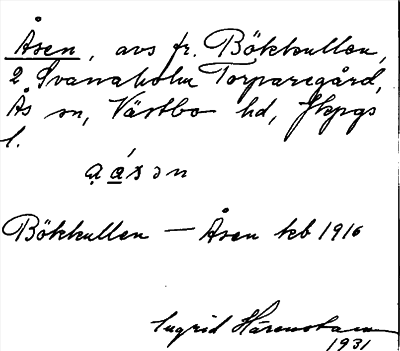 Åsen, avs fr. Bökkullen,
2 Svanaholm Torparegård,
Ås sn, Västbo hd, Jkpgs
l.
a̤ á̱sən
Bökkullen — Åsen kb 1916
Ingrid Härenstam
1931